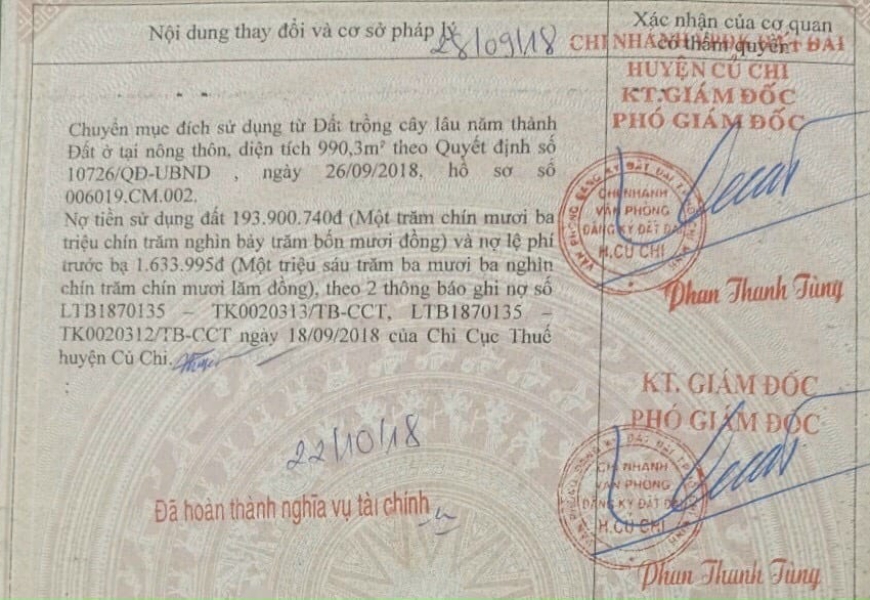 Nội dung thay đổi và cơ sở pháp lý
Xác nhận của cơ quan
có thẩm quyền
28/09/18
CHI NHÁNH VPĐK ĐẤT ĐAI
HUYỆN CỦ CHI
KT.GIÁM ĐỐC
PHÓ GIÁM ĐỐC
Chuyển mục đích sử dụng từ Đất trồng cây lâu năm thành
Đất ở tại nông thôn, diện tích 990,3m² theo Quyết định số
10726/QĐ-UBND , ngày 26/09/2018, hồ sơ số
006019.CM.002.
Nợ tiền sử dụng đất 193.900.740đ (Một trăm chín mươi ba
triệu chín trăm nghìn bảy trăm bốn mươi đồng) và nợ lệ phí
trước bạ 1.633.995đ (Một triệu sáu trăm ba mươi ba nghìn
chín trăm chín mươi lăm đồng), theo 2 thông báo ghi nợ số
LTB1870135 – TK0020313/TB-CCT, LTB1870135 –
TK0020312/TB-CCT ngày 18/09/2018 của Chi Cục Thuế
huyện Củ Chi.
;
VĂN PHÒNG ĐĂNG KÝ ĐẤT ĐAI
CHI NHÁNH
VĂN PHÒNG
ĐĂNG KÝ ĐẤT ĐAI
H.CỦ CHI
Phan Thanh Tùng
22/10/18
Đã hoàn thành nghĩa vụ tài chính
KT. GIÁM ĐỐC
PHÓ GIÁM ĐỐC
CHI NHÁNH
VĂN PHÒNG
ĐĂNG KÝ ĐẤT ĐAI
H.CỦ CHI
Phan Thanh Tùng